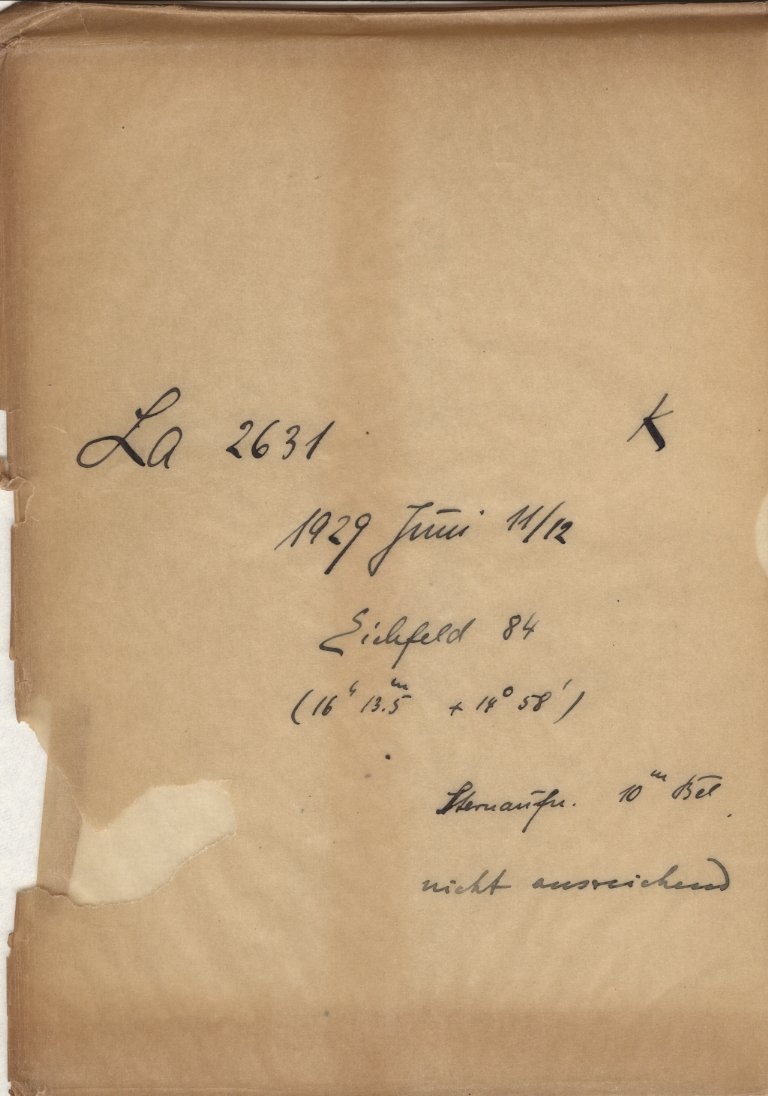 La 2631 K
1929 Juni 11/12
Eichfeld 84
(16ʰ 13.5ᵐ + 14° 58')
Sternaufn. 10ᵐ Bel.
nicht ausreichend